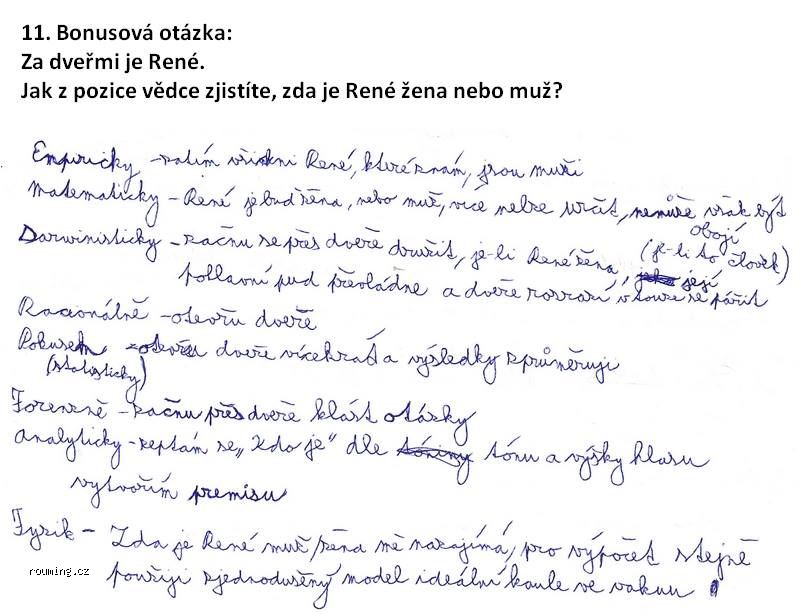 11. Bonusová otázka:
Za dveřmi je René.
Jak z pozice vědce zjistíte, zda je René žena nebo muž?
Empiricky - zatím všichni René, které znám, jsou muži
Matematicky - René je buď žena, nebo muž, více nelze určit, nemůže však být
obojí
(je-li to člověk)
Darwinisticky - začnu se přes dveře dvořit, je-li René žena, její
pohlavní pud převládne a dveře rozrazí v touze se pářit
Racionálně - otevřu dveře
Pokusem - otevřu dveře vícekrát a výsledky zprůměruji
(statisticky)
Forenzně - začnu přes dveře klást otázky
Analyticky - zeptám se „Kdo je" dle tónu a výšky hlasu
vytvořím premisu
Fyzik - Zda je René muž/žena mě nezajímá, pro výpočet stejně
použiji zjednodušený model ideální koule ve vakuu
rouming.cz